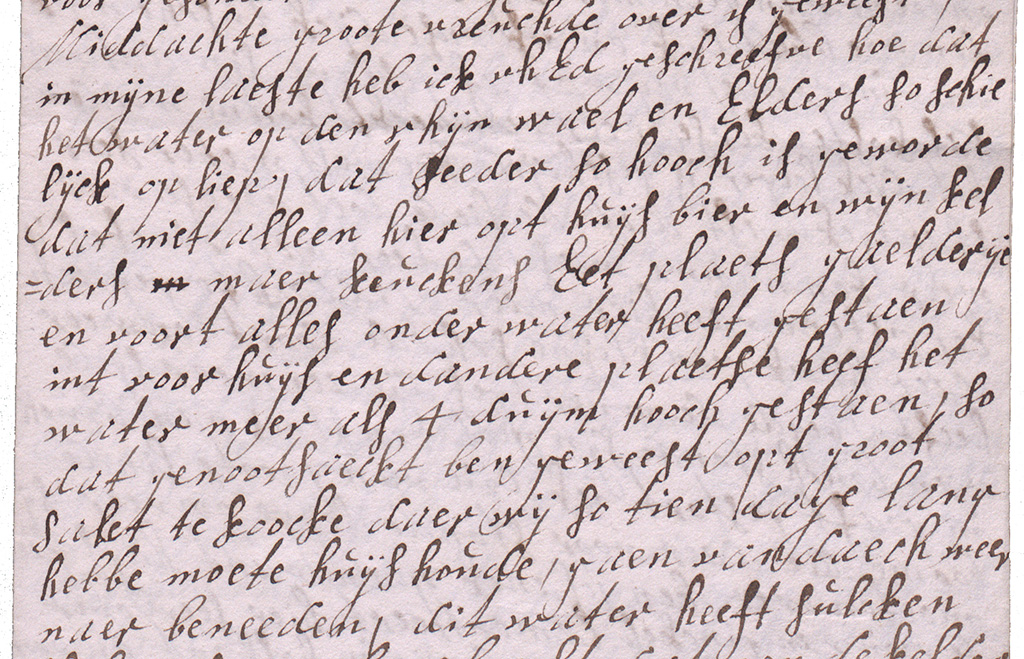 Middachte groote vreuchde over is geweest,
in mijne laeste heb ick uhEd geschreefve hoe dat
het water op den rhijn wael en Elders so schie
lijck op liep, dat seeder so hooch is geworde
dat niet alleen hier opt huijs bier en wijn kel
=ders maer keuckens Eet plaets gaelderije
en voort alles onder water heeft gestaen
int voorhuijs en dandere plaetse heef het
water meer als 4 duijm hooch gestaen, so
dat genootsaeckt ben geweest opt groot
salet te koocke daer wij so tien dage lang
hebbe moete huijshoude, gaen vandaech weer
naer beneeden, dit water heeft sulcken